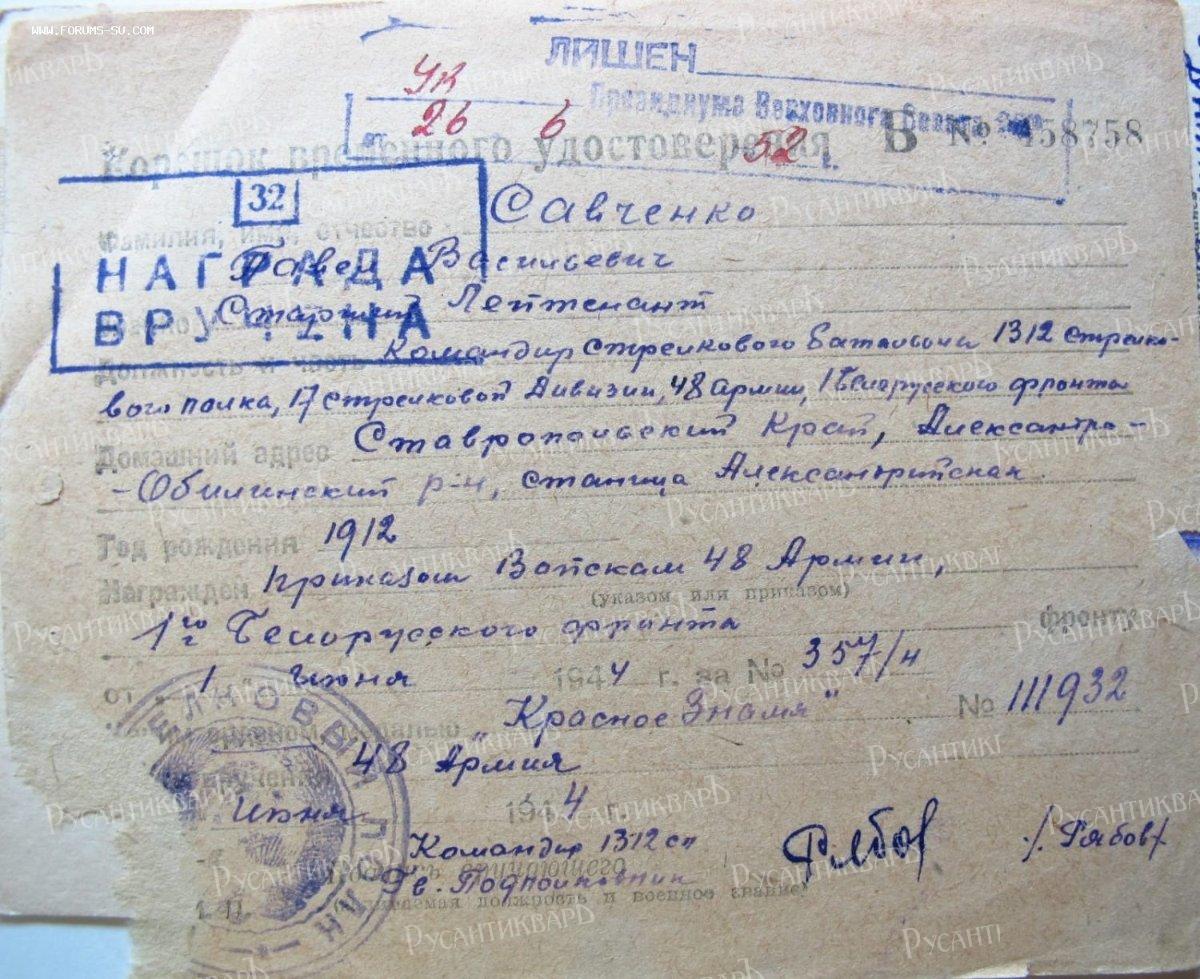 WWW.FORUMS-SU.COM
ЛИШЕН
Ук Президиума Верховного Совета
от 26 6 52 г.
Корешок временного удостоверения В № 458758
32
НАГРАДА
ВРУЧЕНА
Фамилия, имя, отчество Савченко
Павел Васильевич
Старший Лейтенант
Должность и часть Командир стрелкового баталиона 1312 стрелко-
вого полка, 17 стрелковой дивизии, 48 армии, 1 Белорусского фронта
Домашний адрес Ставропольский Край, Александро-
-Обилинский р-н, станица
Год рождения 1912
Награжден приказом Войскам 48 Армии,
(указом или приказом)
1го Белорусского фронта фронту
от 1 июня 1944 г. за № 357/н
орденом, медалью "Красное Знамя" № 111932
вручения 48 Армия
Июня 1944 г.
Командир 1312 сп
Подпись вручающего
Гв. Подполковник Рябов /Рябов/
должность и военное звание)
РусантикварЪ